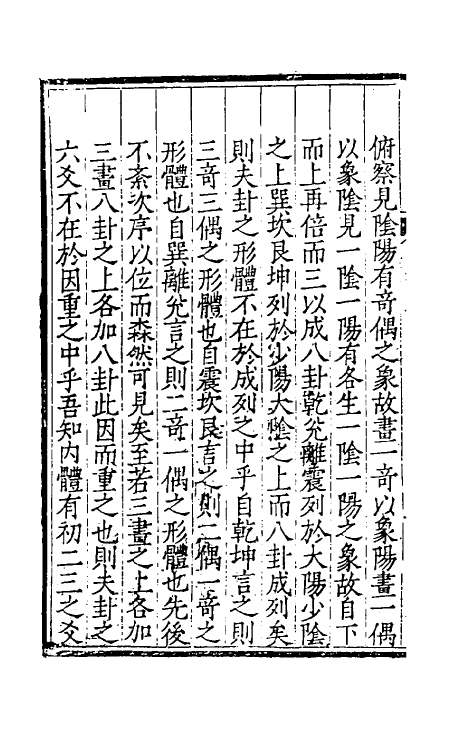 俯察見陰陽有竒偶之象故畫一竒以象陽畫一偶
以象陰見一陰一陽有各生一陰一陽之象故自下
而上再倍而三以成八卦乾兊離震列於大陽少陰
之上巽坎艮坤列於少陽大隂之上而八卦成列矣
則夫卦之形體不在於成列之中乎自乾坤言之則
三竒三偶之形體也自震坎艮言之則二偶一竒之
形體也自巽離兊言之則二竒一偶之形體也先後
不紊次序以位而森然可見矣至若三畫之上各加
三畫八卦之上各加八卦此因而重之也則夫卦之
六爻不在於因重之中乎吾知内體有初二三之爻